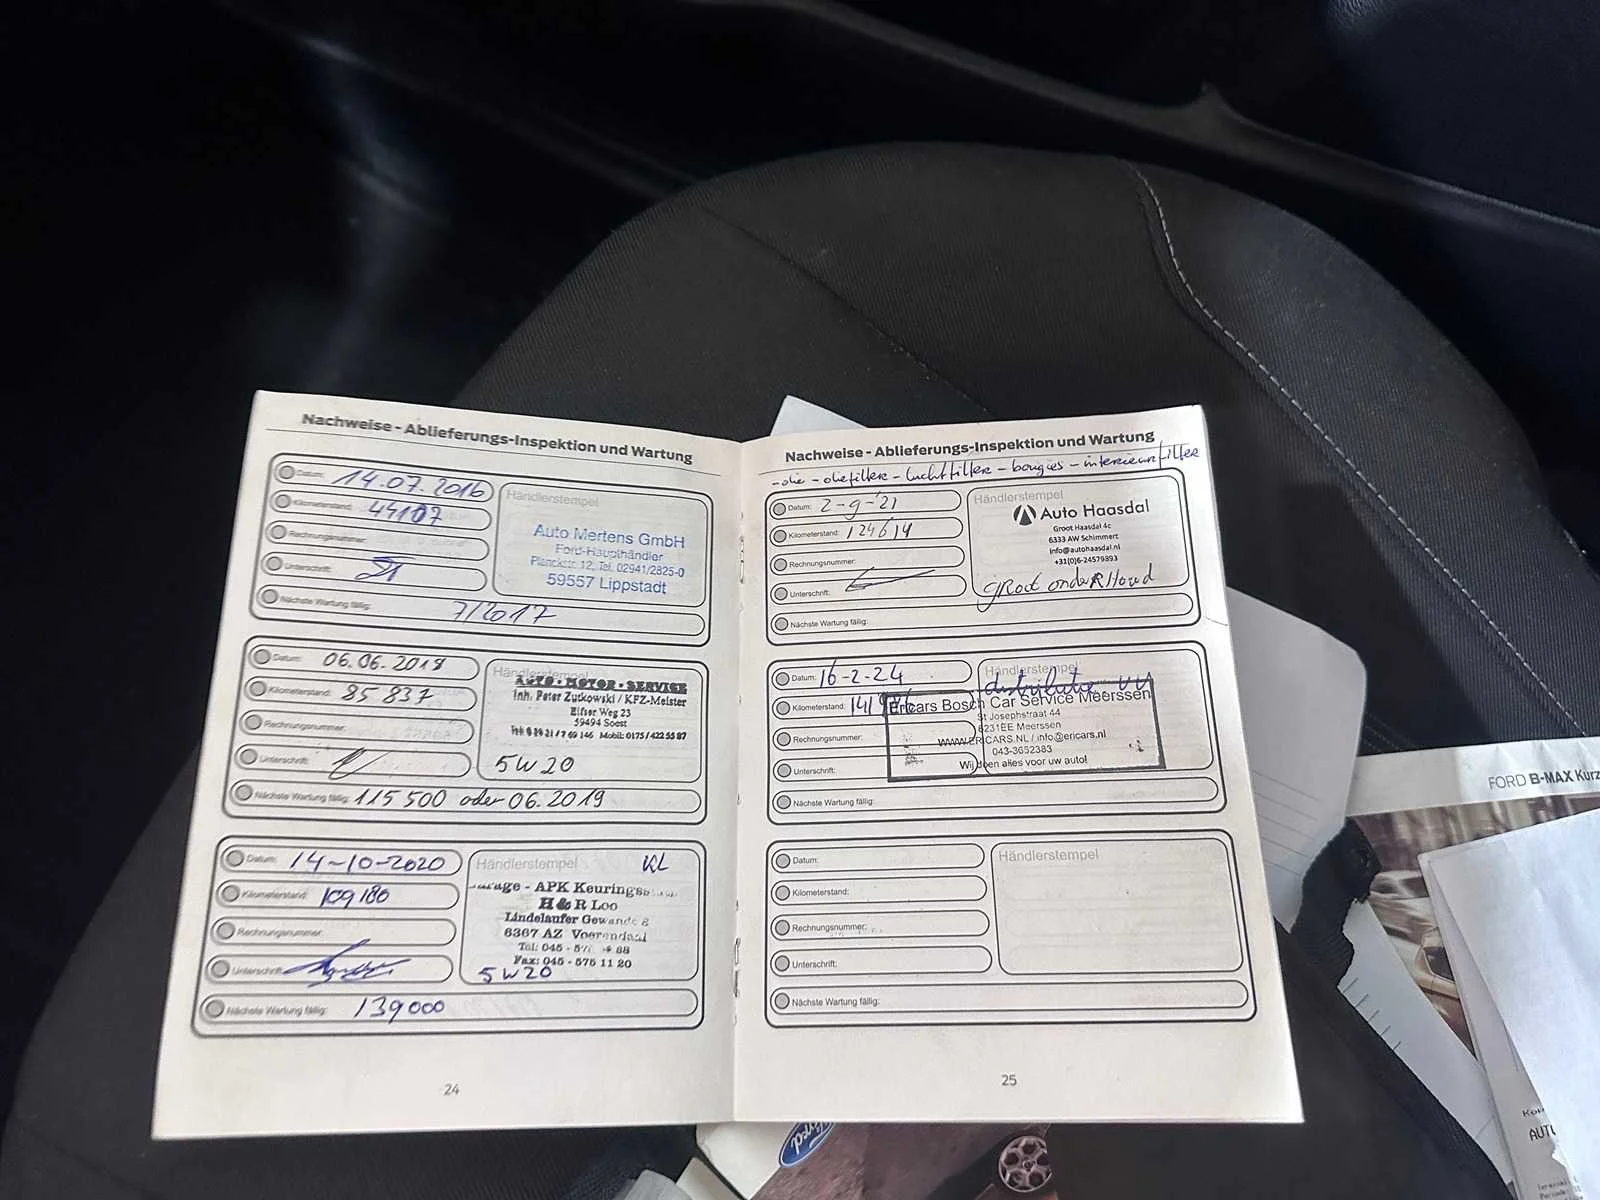 Nachweise - Ablieferungs-Inspektion und Wartung
Datum: 14.07.2016
Kilometerstand: 44107
Rechnungsnummer:
Unterschrift:
Nächste Wartung fällig: 7/2017
Händlerstempel
Auto Mertens GmbH
Ford-Haupthändler
Planckstr. 12, Tel. 02941/2825-0
59557 Lippstadt
Datum: 06.06.2018
Kilometerstand: 85 837
Rechnungsnummer:
Unterschrift:
Nächste Wartung fällig: 115 500 oder 06.2019
Händlerstempel
AUTO-MOTOR-SERVICE
Inh. Peter Zutkowski / KFZ-Meister
Elfser Weg 23
59494 Soest
Mobil: 0175/422 55 87
5W20
Datum: 14-10-2020
Kilometerstand: 109180
Rechnungsnummer:
Unterschrift:
Nächste Wartung fällig: 139000
Händlerstempel
- APK Keurings
H & R Loo
Lindelaufer Gewande 8
6367 AZ Voerendaal
Tel: 045 - 88
Fax: 045 - 575 11 20
5W20
24
Nachweise - Ablieferungs-Inspektion und Wartung
- olie - oliefilter - luchtfilter - bougies - interieurfilter
Datum: 2-9-'21
Kilometerstand: 124614
Rechnungsnummer:
Unterschrift:
Nächste Wartung fällig:
Händlerstempel
Auto Haasdal
Groot Haasdal 4c
6333 AW Schimmert
info@autohaasdal.nl
+31(0)6-24579893
Groot onderhoud
Datum: 16-2-24
Kilometerstand:
Rechnungsnummer:
Unterschrift:
Nächste Wartung fällig:
Händlerstempel
distributie
Ericars Bosch Car Service Meerssen
St Josephstraat 44
6231EE Meerssen
WWW.ERICARS.NL / info@ericars.nl
043-3652383
Wij doen alles voor uw auto!
Datum:
Kilometerstand:
Rechnungsnummer:
Unterschrift:
Nächste Wartung fällig:
Händlerstempel
25
FORD B-MAX Kurz
Ford